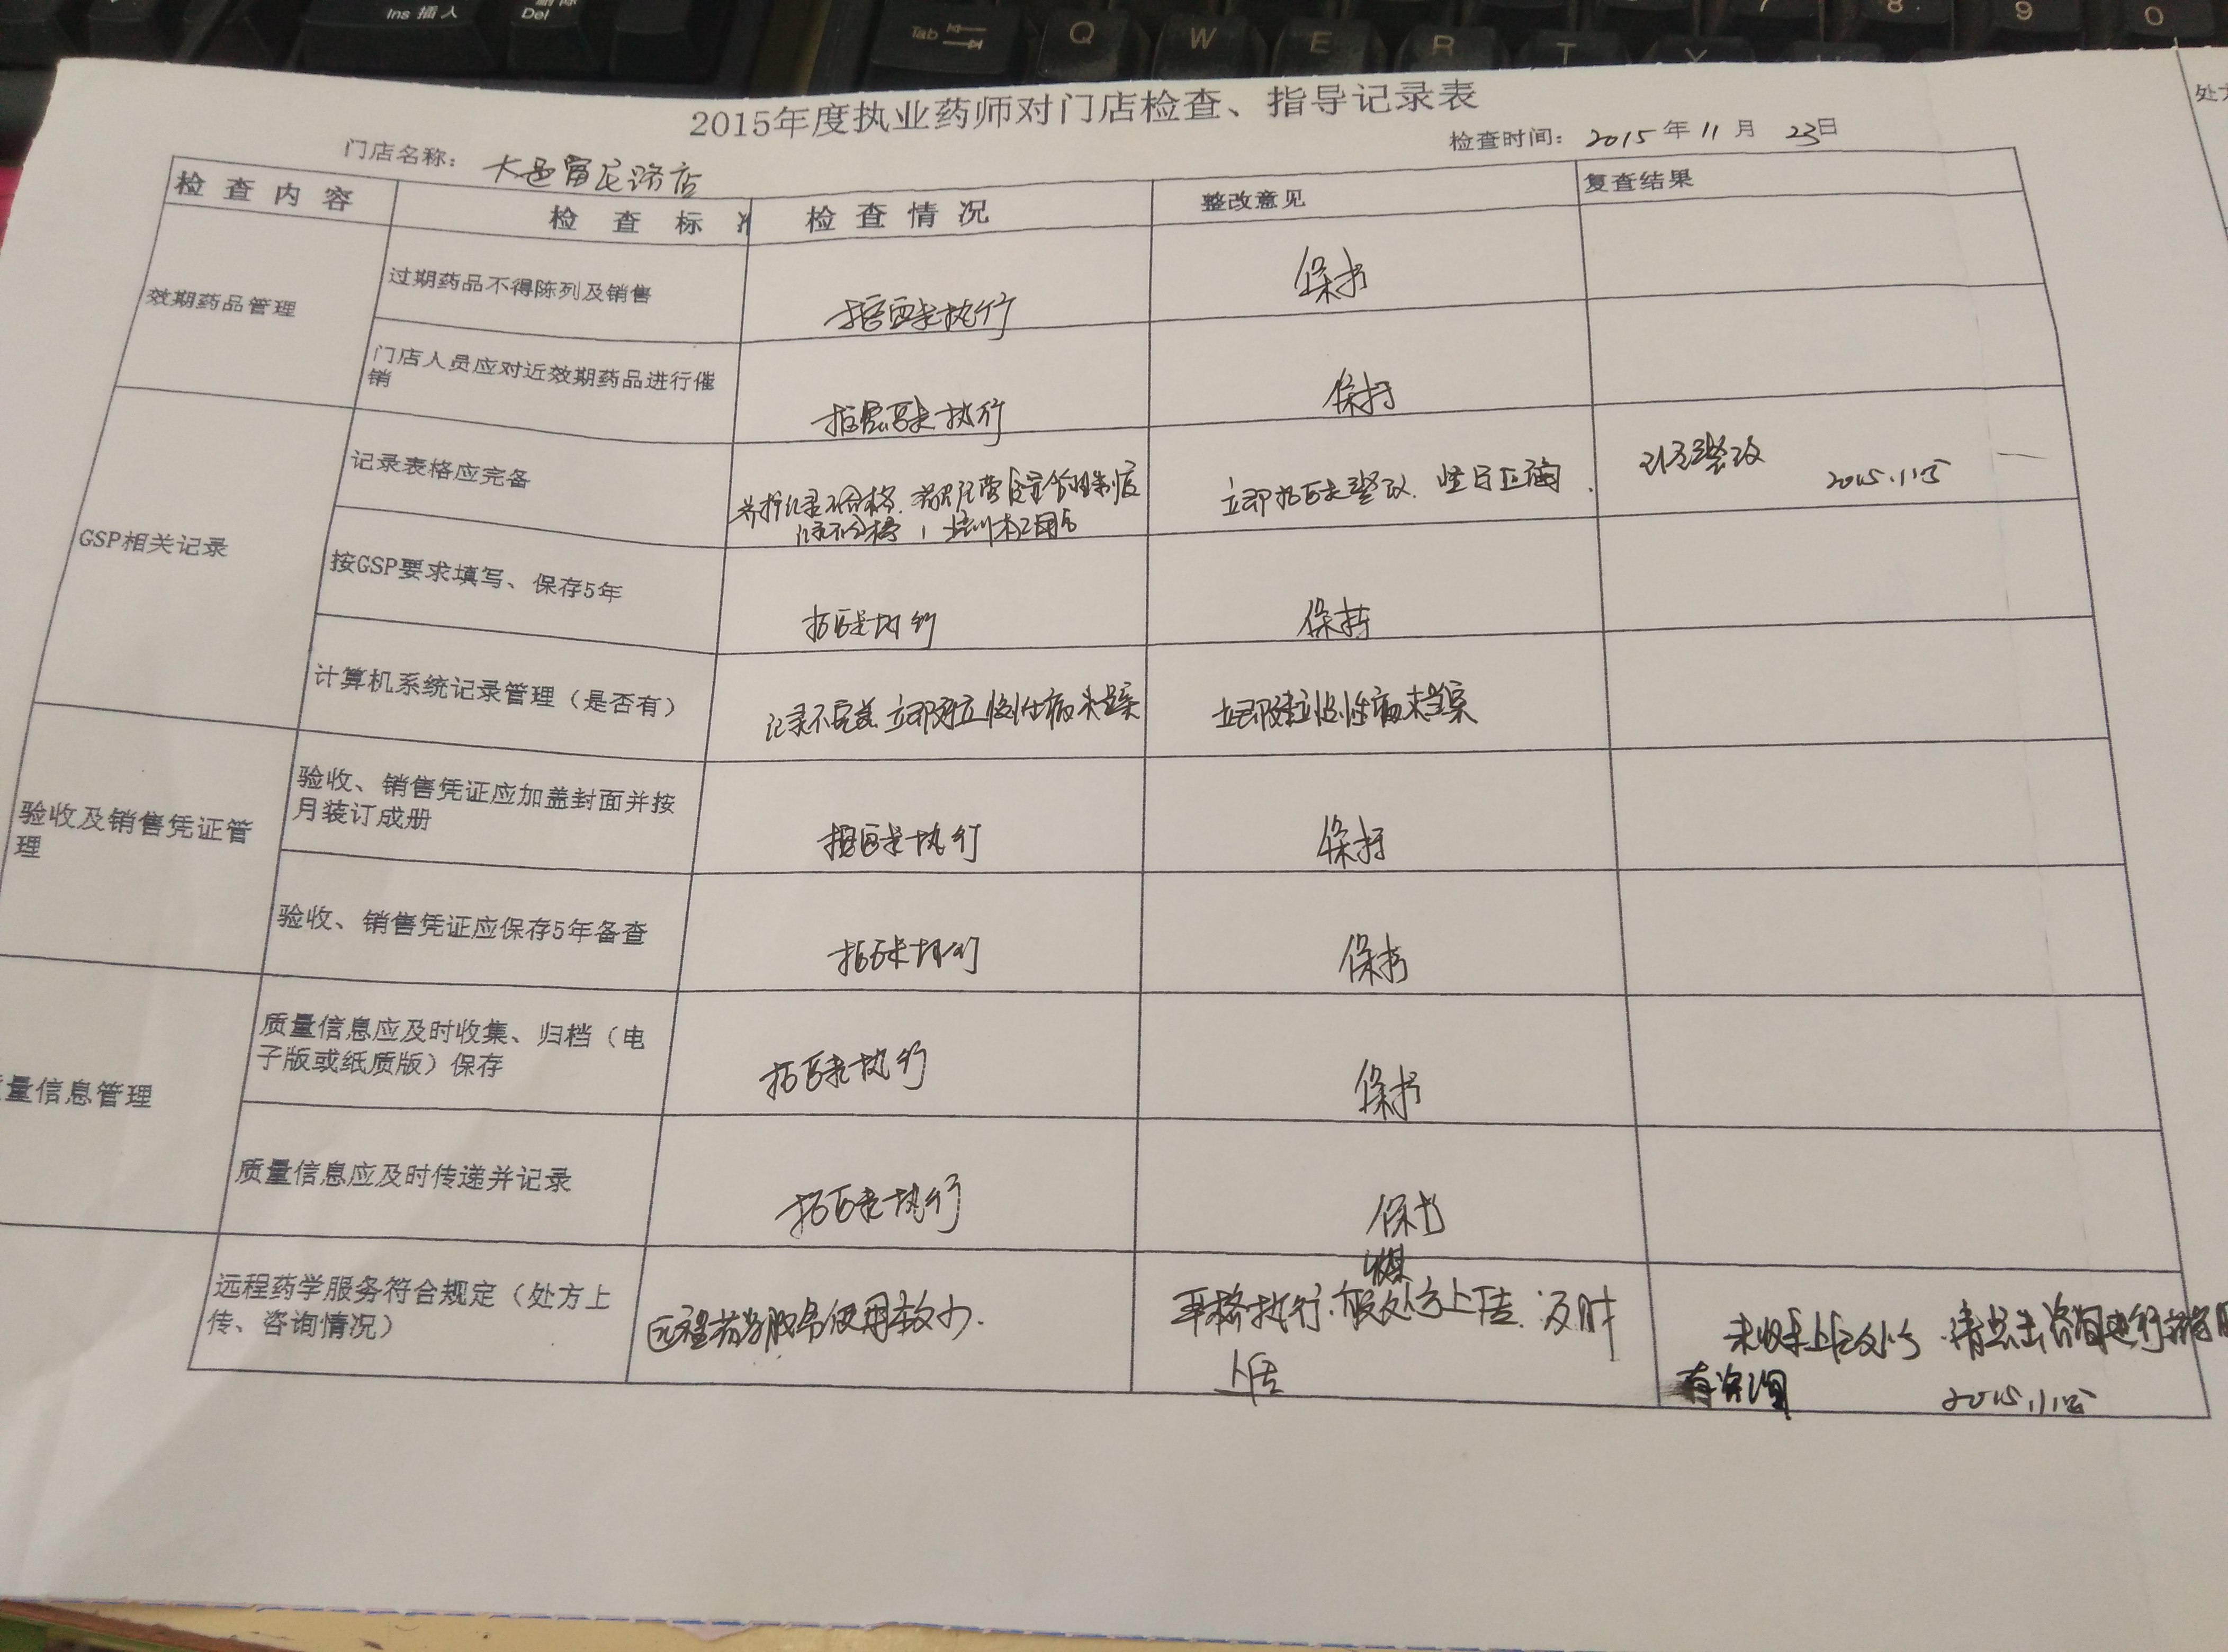 Ins 插入
Del
Tab
Q W E R T
7 8 9 0
2015年度执业药师对门店检查、指导记录表
处方
门店名称: 大邑富民路店
检查时间: 2015年11月23日
检查内容
检查标准
检查情况
整改意见
复查结果
效期药品管理
过期药品不得陈列及销售
按要求执行
保持
门店人员应对近效期药品进行催
销
按要求执行
保持
GSP相关记录
记录表格应完备
立即按要求整改.
已经整改
按GSP要求填写、保存5年
按要求执行
保持
计算机系统记录管理(是否有)
记录不完善 立即建立慢性病来档案
立即建立慢性病来档案
验收及销售凭证管
理
验收、销售凭证应加盖封面并按
月装订成册
按要求执行
保持
验收、销售凭证应保存5年备查
按要求执行
保持
量信息管理
质量信息应及时收集、归档(电
子版或纸质版)保存
按要求执行
保持
质量信息应及时传递并记录
按要求执行
保持
远程药学服务符合规定(处方上
传、咨询情况)
远程药学服务使用较少.
严格执行. 处方上传. 及时
上传
未收来上传处方. 请点击咨询进行
有咨询